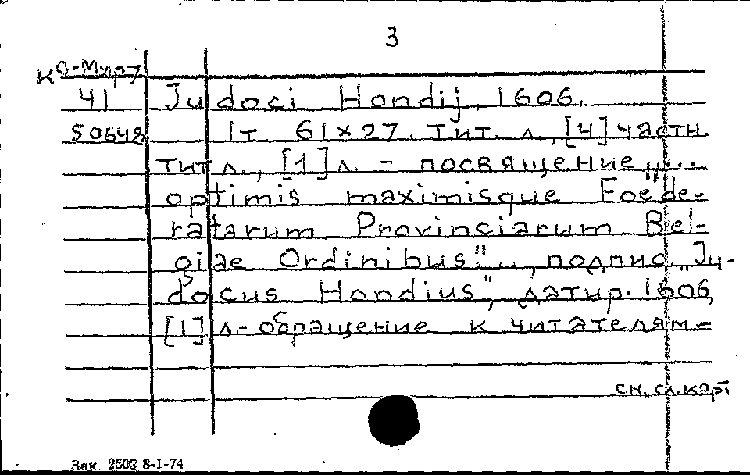 3
КО-Мур7
41 Judoci Hondij, 1606.
50648 1т 61×27. тит. л., [4] частн.
тит л., [1] л. - посвящение „...
optimis maximisque Foede-
ratarum Provinciarum Bel-
giae Ordinibus"..., подпис. „Ju-
docus Hondius", датир. 1606,
[1] л-обращение к читателям-
см. сл. карт
Зак. 2503 8-I-74